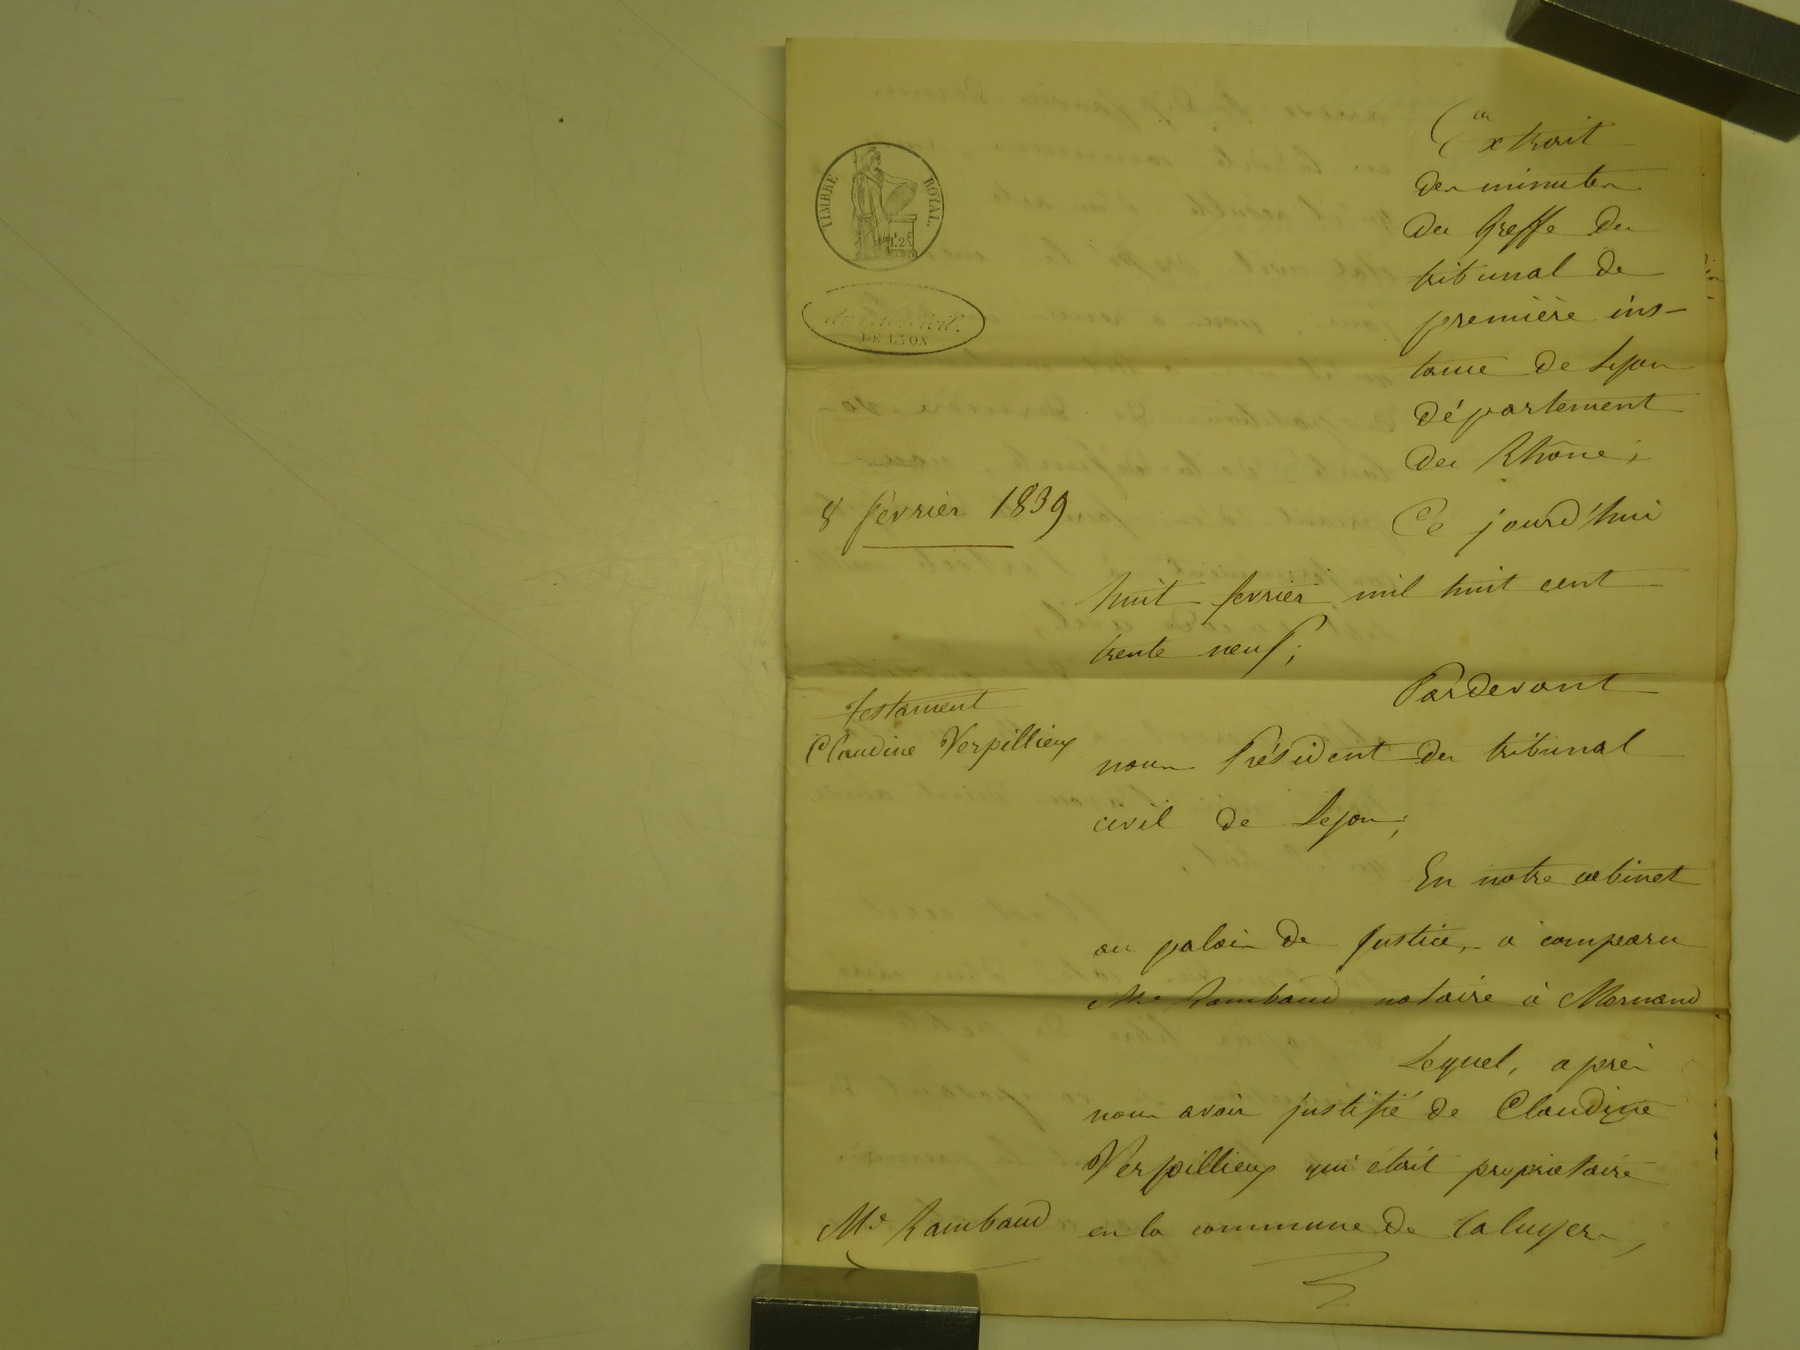 TIMBRE ROYAL
DE LYON
Extrait
des minutes
du Greffe du
tribunal de
première ins-
tance de Lyon
département
du Rhône;
8 fevrier 1839
Ce jourd'hui
huit fevrier mil huit cent
trente neuf;
Pardevant
testament
Claudine Verpillieux
nous Président du tribunal
civil de Lyon;
En notre cabinet
au palais de Justice, a comparu
Me Rambaud notaire à Mornand
Lequel, après
nous avoir justifié de Claudine
Verpillieux qui était propriétaire
Me Rambaud
en la commune de Taluyers,